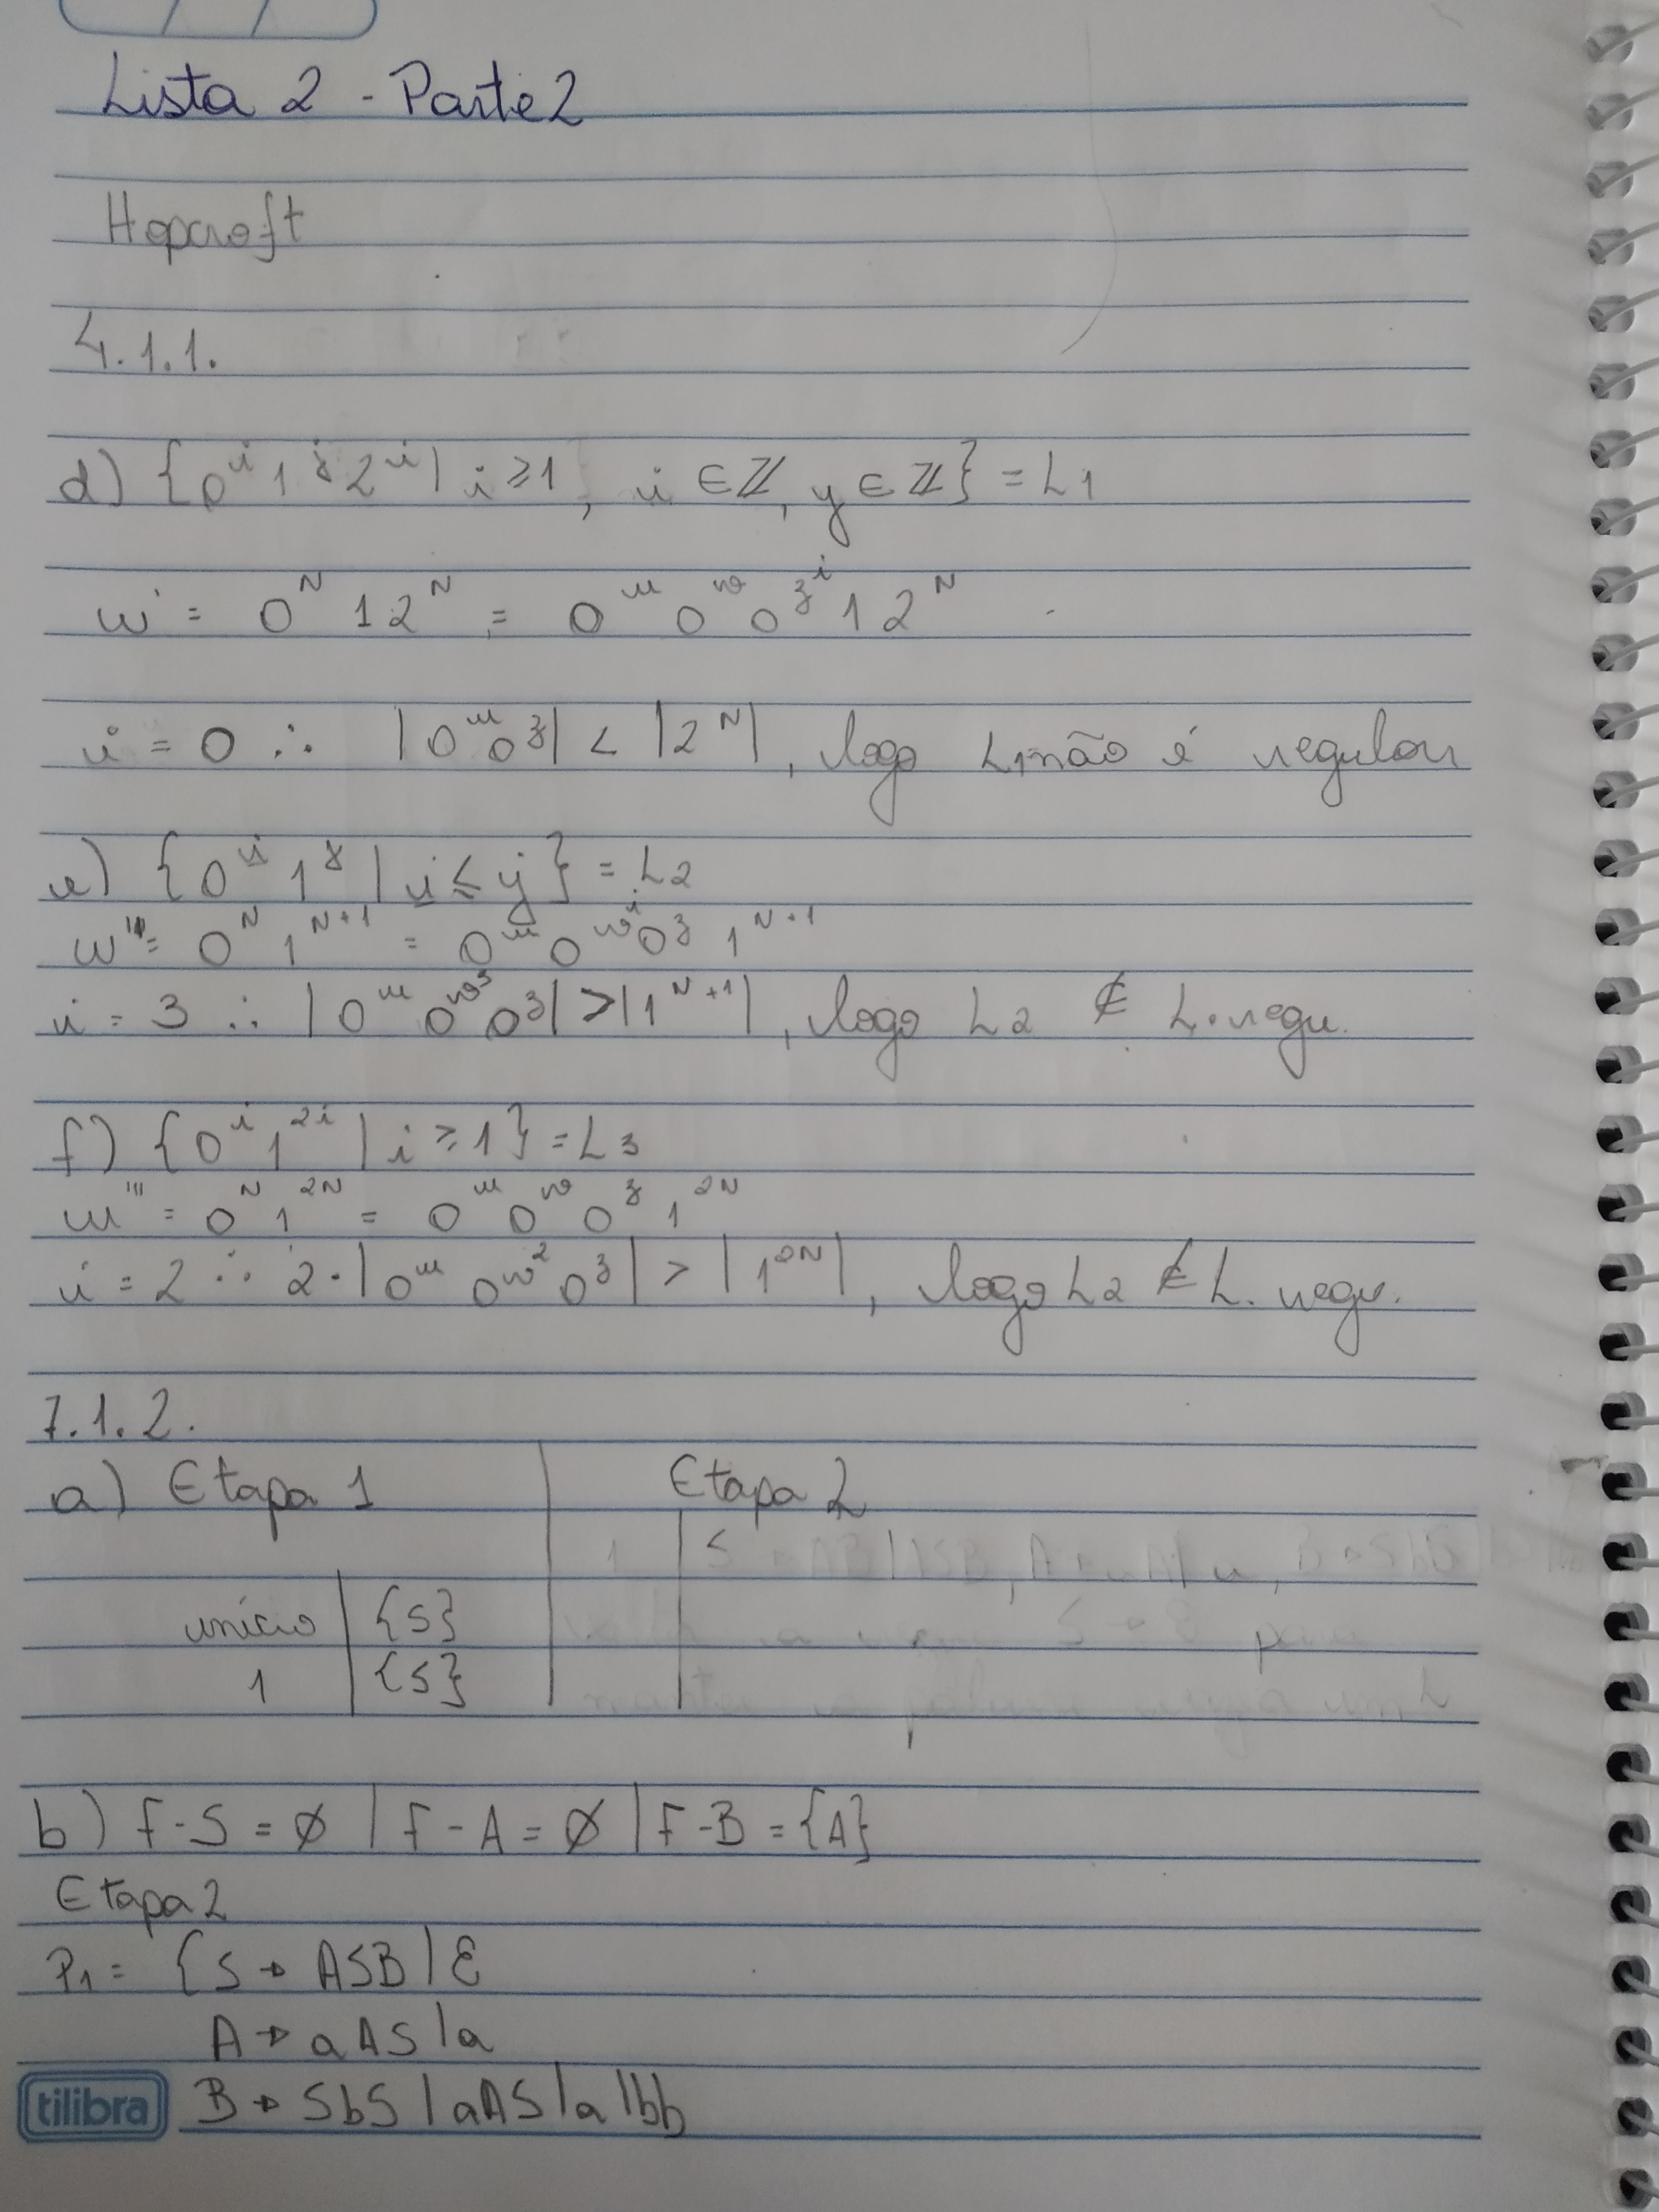 Lista 2 - Parte 2
Hopcroft
4.1.1.
d) {0^i 1^j 2^i | i ≥ 1, i ∈ ℤ, y ∈ ℤ} = L1
w' = 0^N 1 2^N = 0^u 0^v 0^z^i 1 2^N
i = 0 ∴ |0^u 0^z| < |2^N|, logo L1 não é regular
e) {0^i 1^j | i ≤ j} = L2
w'' = 0^N 1^N+1 = 0^u 0^v^i 0^z 1^N+1
i = 3 ∴ |0^u 0^v^3 0^z| > |1^N+1|, logo L2 ∉ L. regu.
f) {0^i 1^2i | i ≥ 1} = L3
w''' = 0^N 1^2N = 0^u 0^v 0^z 1^2N
i = 2 ∴ 2·|0^u 0^v^2 0^z| > |1^2N|, logo L2 ∉ L. regu.
7.1.2.
a) Etapa 1 Etapa 2
1 S
início {S}
1 {S}
b) F-S = ∅ | F-A = ∅ | F-B = {A}
Etapa 2
P1 = {S → ASB | ε
A → aAS | a
B → SbS | aAS | a | bb
tilibra